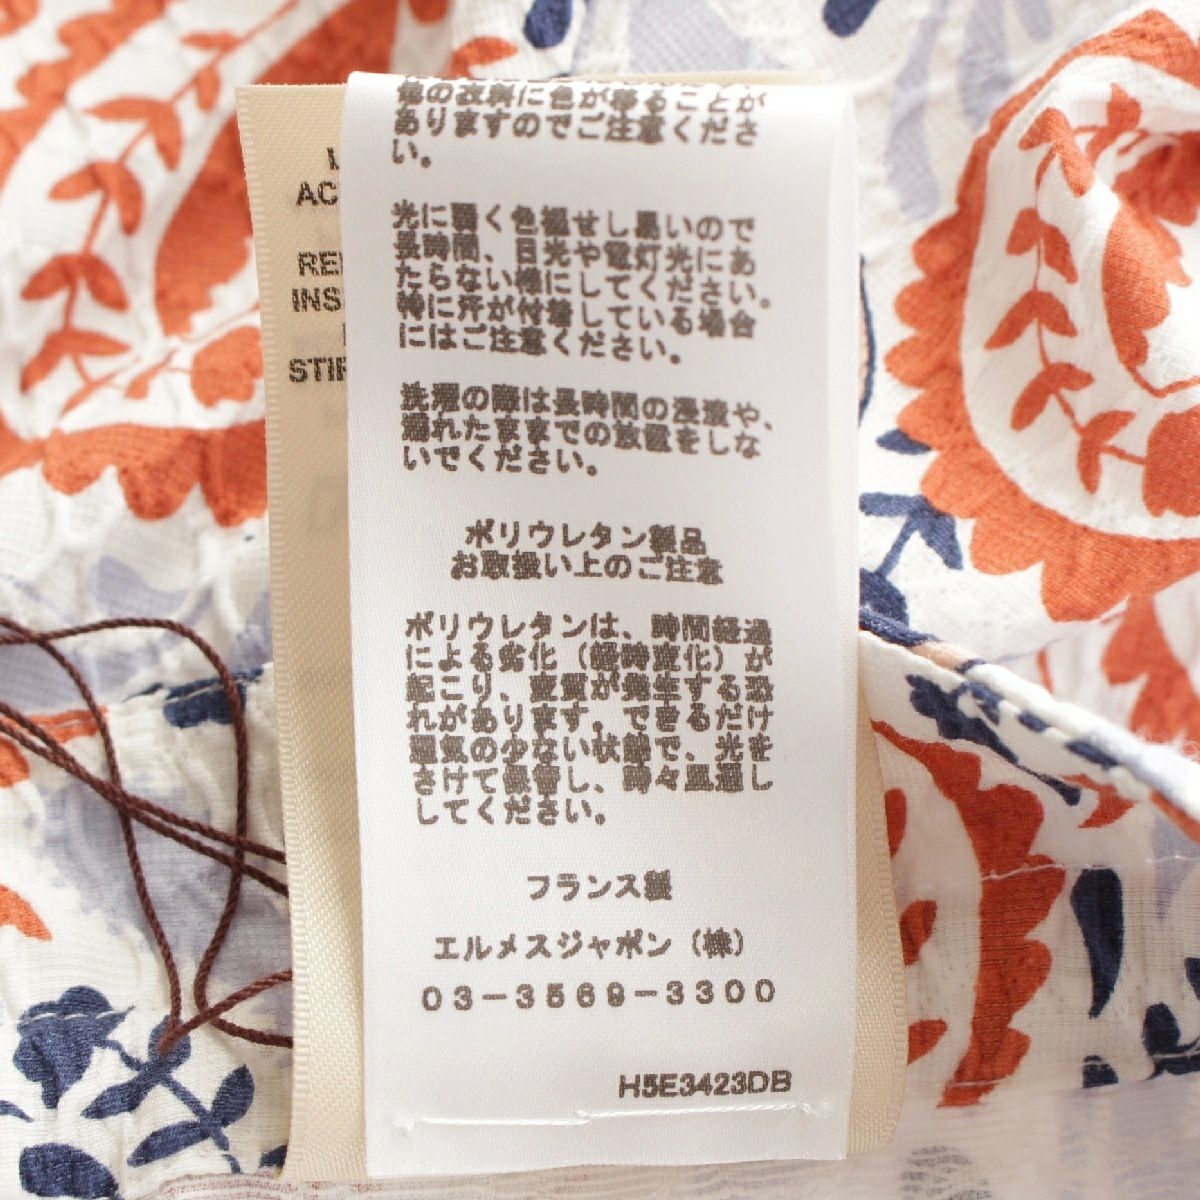 他の衣料に色が移ることが
ありますのでご注意くださ
い。
光に弱く色褪せし易いので
長時間、日光や電灯光にあ
たらない様にしてください。
特に汗が付着している場合
にはご注意ください。
洗濯の際は長時間の浸漬や、
濡れたままでの放置をしな
いでください。
ポリウレタン製品
お取扱い上のご注意
ポリウレタンは、時間経過
による劣化（経時変化）が
起こり、変質が発生する恐
れがあります。できるだけ
湿気の少ない状態で、光を
さけて保管し、時々風通し
してください。
フランス製
エルメスジャポン（株）
03-3569-3300
H5E3423DB
AC
INS